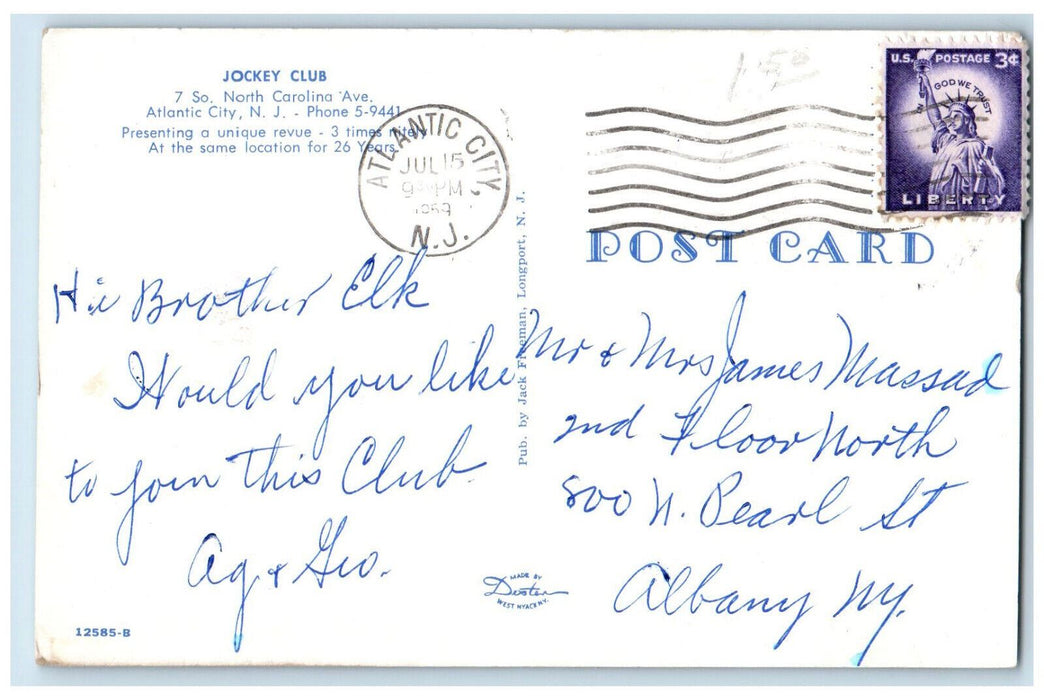 JOCKEY CLUB
7 So. North Carolina Ave.
Atlantic City, N. J. - Phone 5-9441
Presenting a unique revue - 3 times nitely
At the same location for 26 Years
ATLANTIC CITY,
JUL 15
9 PM
1959
N.J.
1.50
U.S. POSTAGE 3¢
IN GOD WE TRUST
LIBERTY
POST CARD
Hi Brother Elk
Would you like
to join this Club.
Ag & Geo.
Pub. by Jack Freeman, Longport, N. J.
Mr & Mrs James Massad
2nd Floor North
800 N. Pearl St
Albany NY.
MADE BY
Dexter
WEST NYACK N.Y.
12585-B